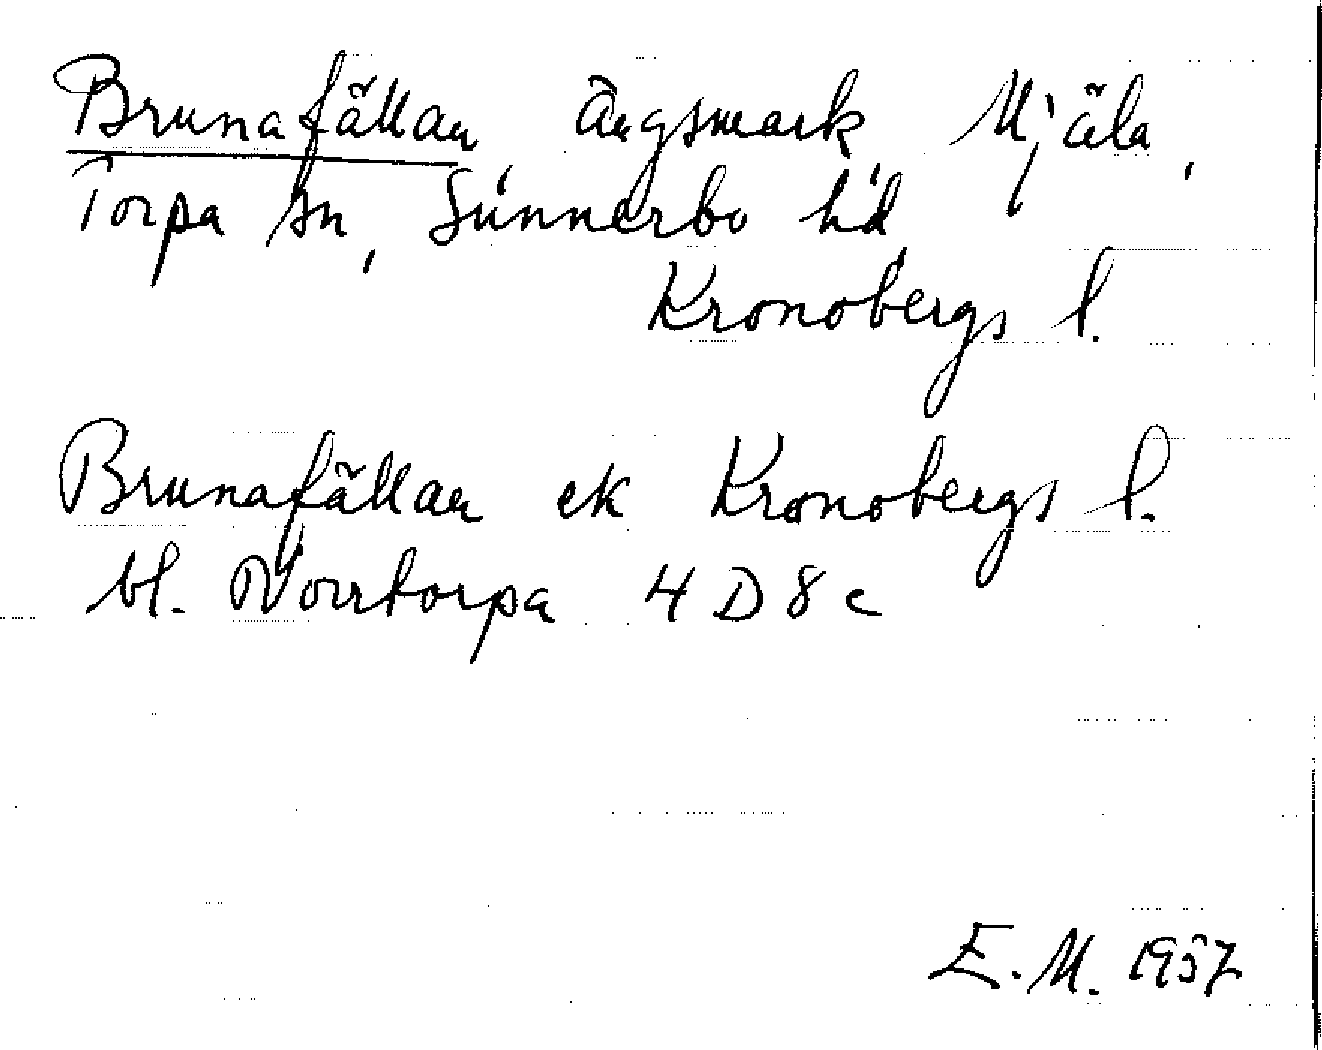 Brunafällan, ängsmark, Mjäla,
Torpa sn, Sunnerbo hd,
Kronobergs l.
Brunafällan ek Kronobergs l.
bl. Norrtorpa 4 D 8 c
E. M. 1957